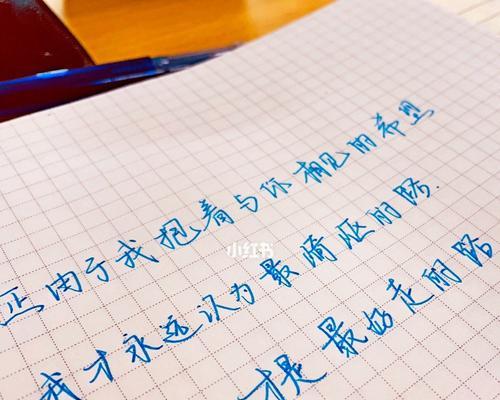 正由于我抱着与你相见的希望
小红书
我才永远认为最崎岖的路.
才是最好走的路